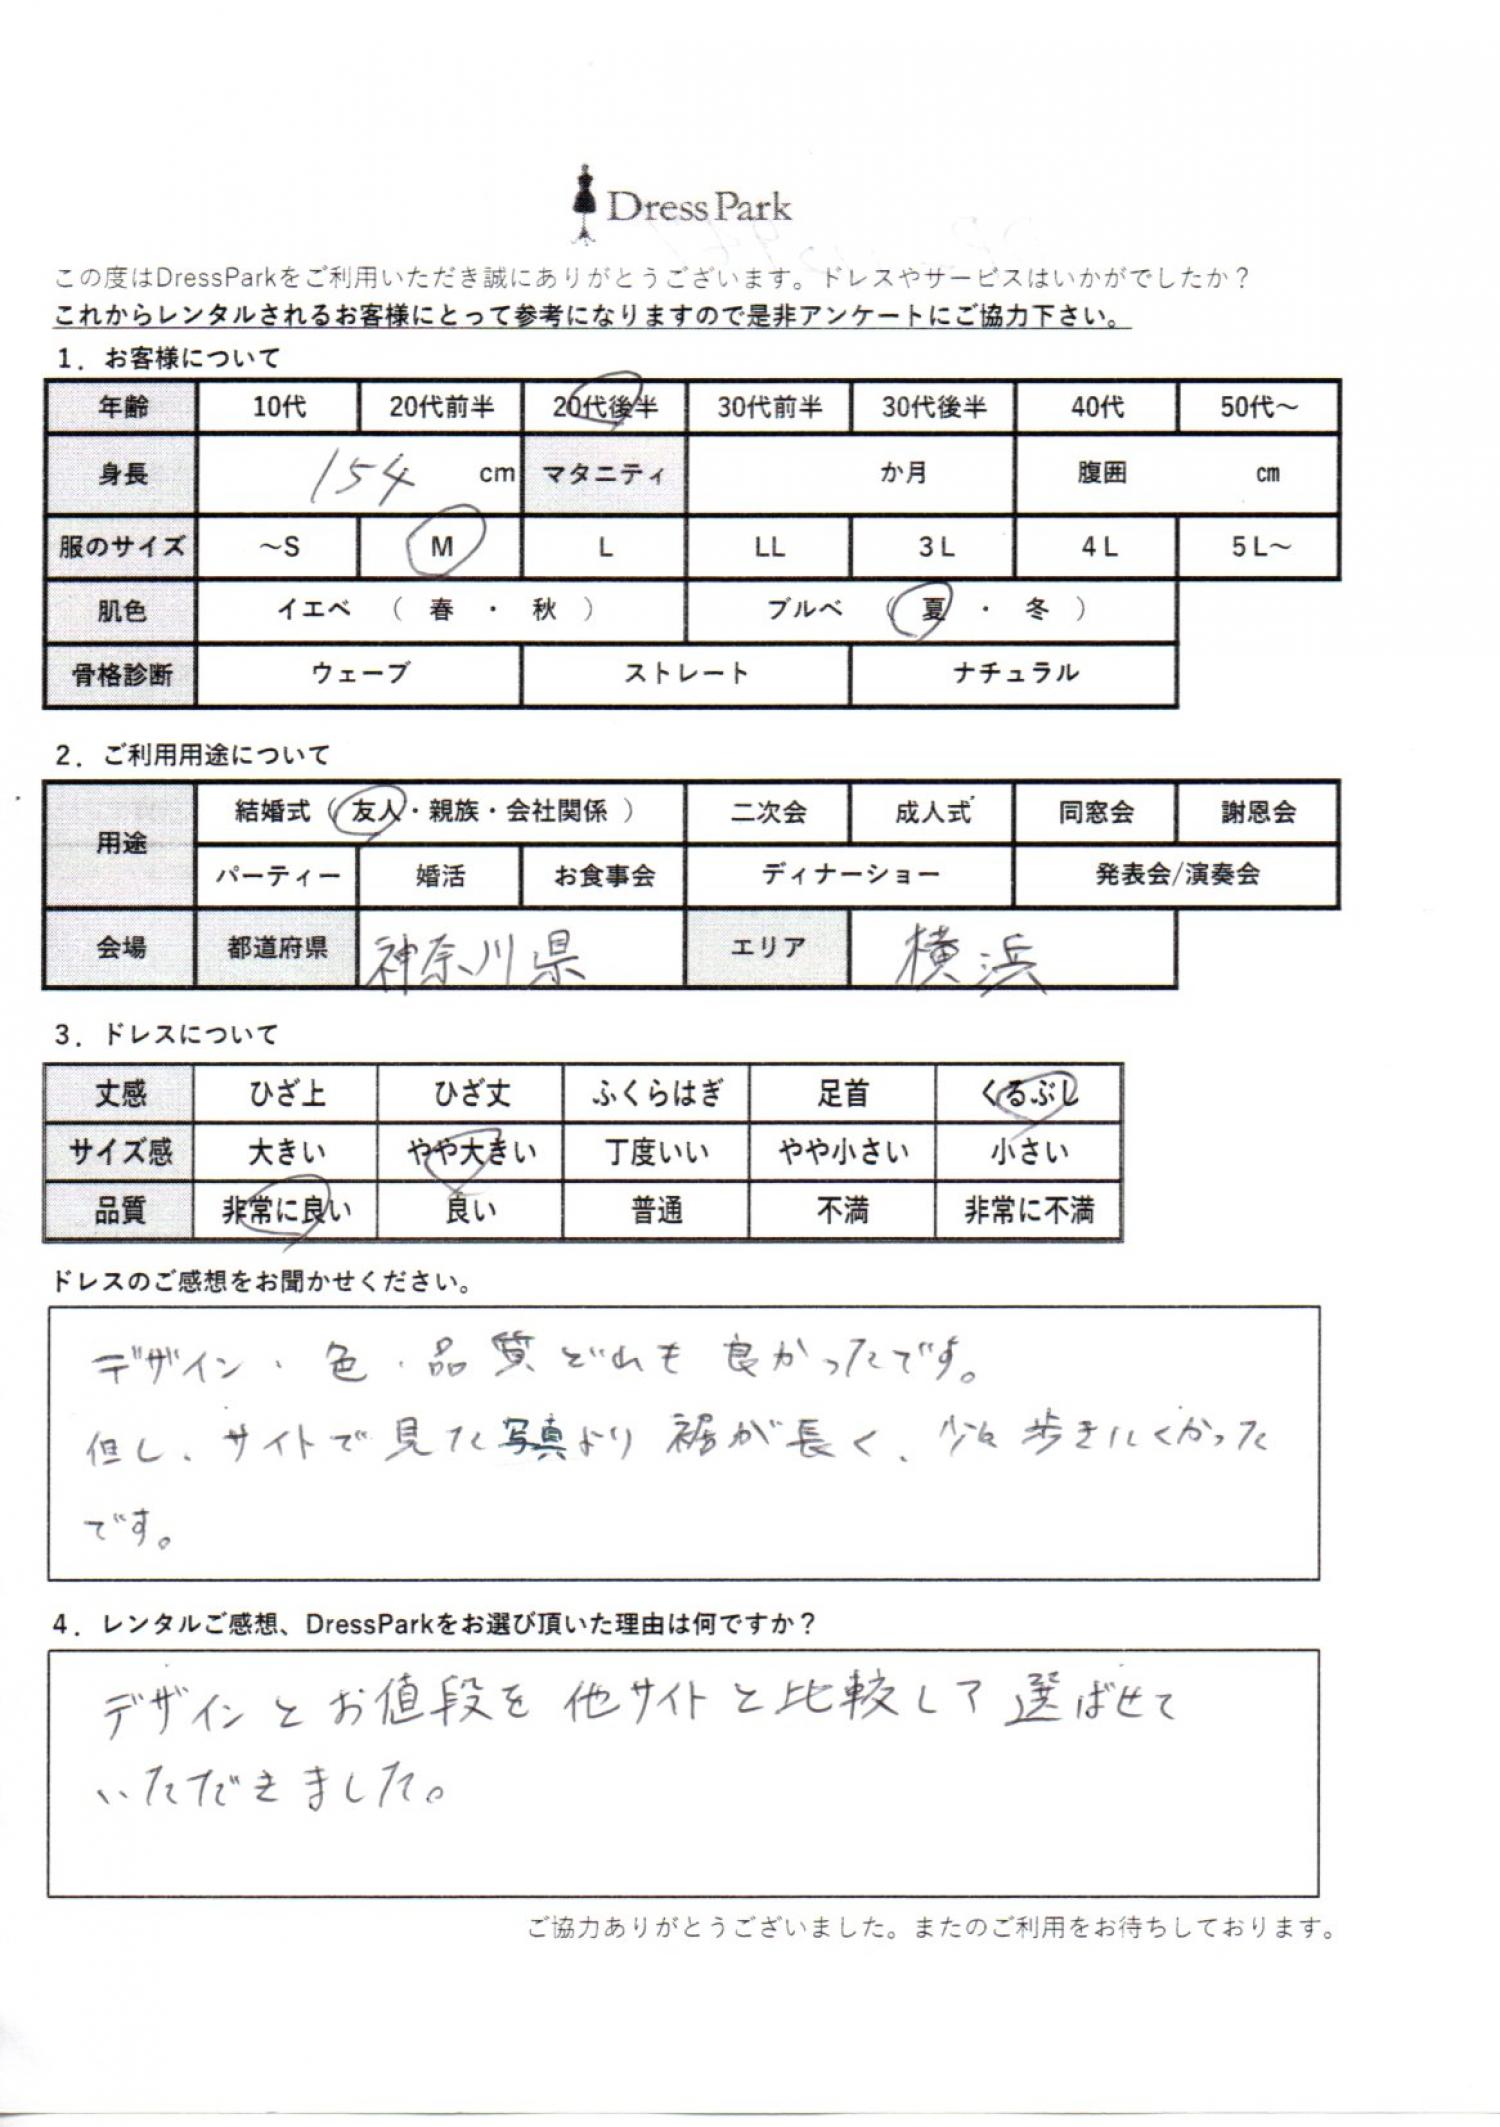 Dress Park
この度はDressParkをご利用いただき誠にありがとうございます。ドレスやサービスはいかがでしたか？
これからレンタルされるお客様にとって参考になりますので是非アンケートにご協力下さい。
1．お客様について
年齢 10代 20代前半 20代後半 30代前半 30代後半 40代 50代～
身長 154 cm マタニティ か月 腹囲 cm
服のサイズ ～S M L LL 3L 4L 5L～
肌色 イエベ （ 春 ・ 秋 ） ブルベ （ 夏 ・ 冬 ）
骨格診断 ウェーブ ストレート ナチュラル
2．ご利用用途について
用途 結婚式（ 友人・親族・会社関係 ） 二次会 成人式 同窓会 謝恩会
パーティー 婚活 お食事会 ディナーショー 発表会/演奏会
会場 都道府県 神奈川県 エリア 横浜
3．ドレスについて
丈感 ひざ上 ひざ丈 ふくらはぎ 足首 くるぶし
サイズ感 大きい やや大きい 丁度いい やや小さい 小さい
品質 非常に良い 良い 普通 不満 非常に不満
ドレスのご感想をお聞かせください。
デザイン・色・品質どれも良かったです。
但し、サイトで見た写真より裾が長く、少々歩きにくかった
です。
4．レンタルご感想、DressParkをお選び頂いた理由は何ですか？
デザインとお値段を他サイトと比較して選ばせて
いただきました。
ご協力ありがとうございました。またのご利用をお待ちしております。